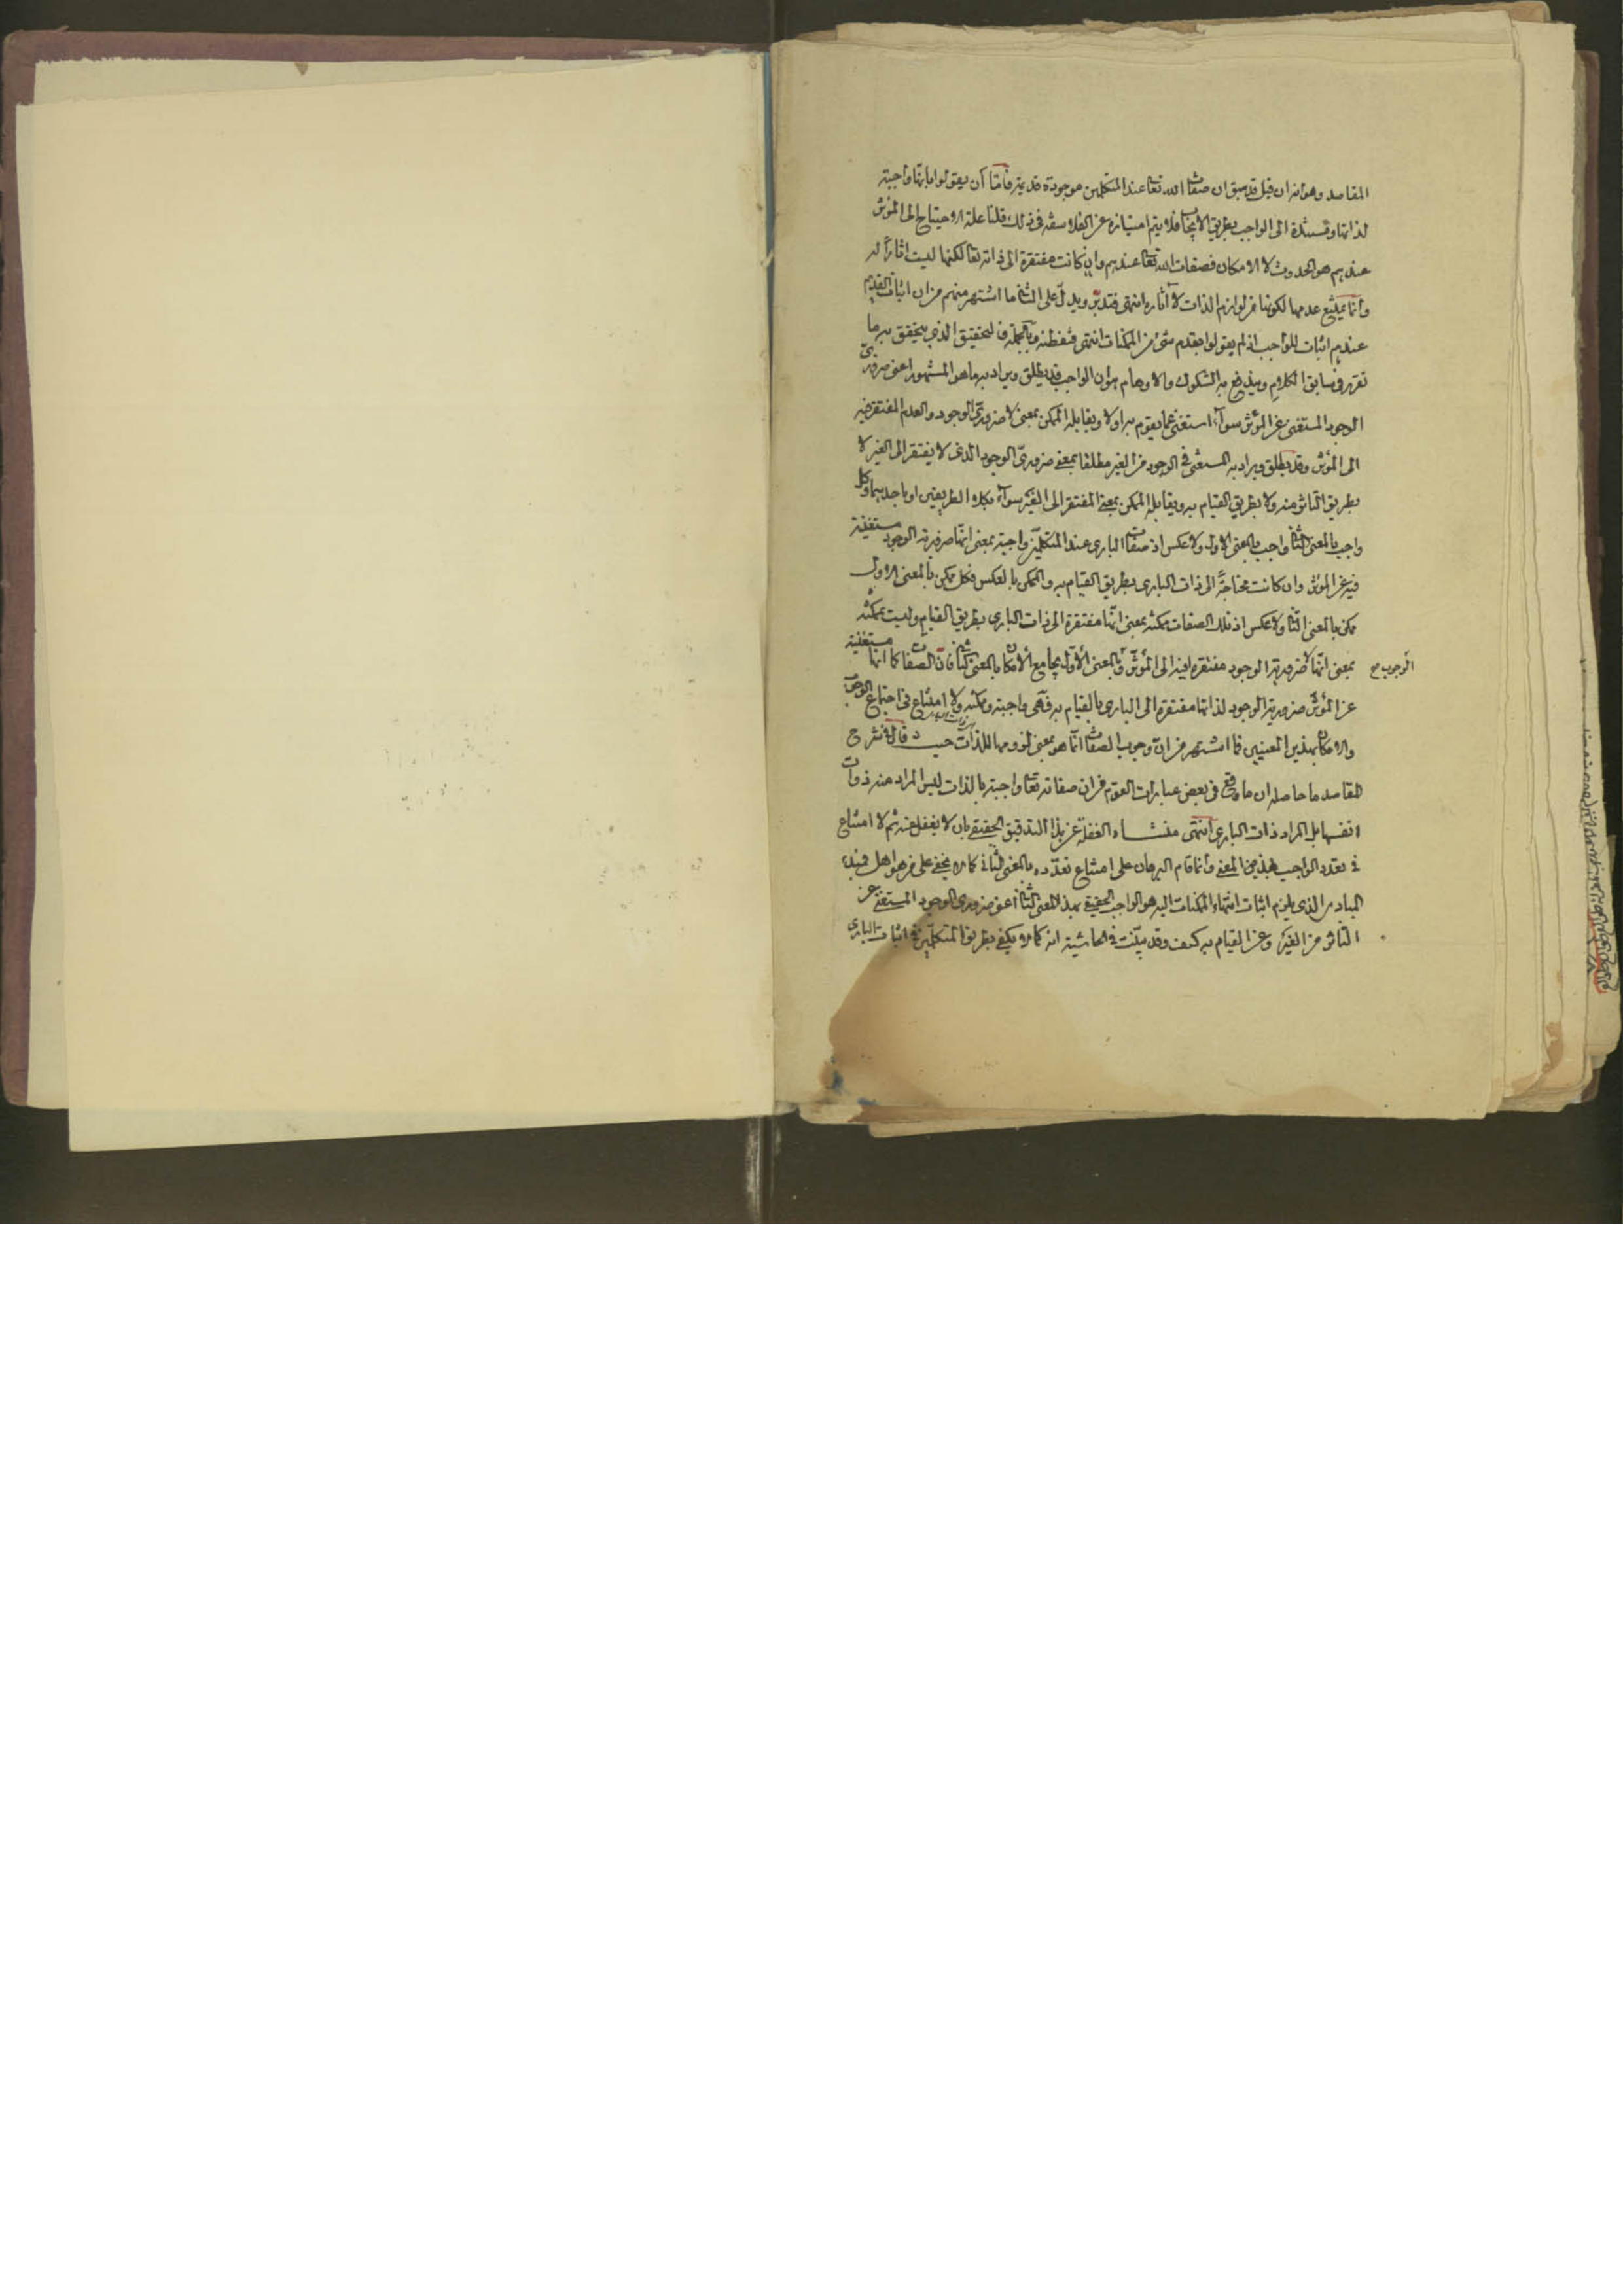 المقاصد وهو انه ان قيل قد سبق ان صفات الله تعا عند المتكلمين موجودة قديمة فاما ان يقولوا بانها واجبة
لذاتها ومستندة الى الواجب بطريق الايجاب فلا يتم امتيازه عن الفلاسفة في ذلك قلنا علة الاحتياج الى المؤثر
عندهم هو الحدوث لا الامكان فصفات الله تعا عندهم وان كانت مفتقرة الى ذاته تعا لكنها ليست اثارا له
وانما يمتنع عدمها لكونها من لوازم الذات لا آثاره انتهى فتدبر ويدل على الثاني ما اشتهر منهم من ان اثبات القديم
عندهم اثبات للواجب اذ لم يقولوا بقدم شئ من الممكنات انتهى فتفطنه وبالجملة فالتحقيق الذي يتحقق به ما
تقرر في سابق الكلام ويندفع به الشكوك والاوهام هو ان الواجب قد يطلق ويراد به ما هو المشهور اعني ضروري
الوجود المستغني عن المؤثر سواء استغنى عما يقوم به اولا ويقابله الممكن بمعنى لا ضروري الوجود والعدم المفتقر فيه
الى المؤثر وقد يطلق ويراد به المستغني في الوجود من الغير مطلقا بمعنى ضروري الوجود الذي لا يفتقر الى الغير لا
بطريق التاثر منه ولا بطريق القيام به ويقابله الممكن بمعنى المفتقر الى الغير سواء بكلا الطريقين او باحدهما وكل
واجب بالمعنى الثاني واجب بالمعنى الاول ولا عكس اذ صفات الباري عند المتكلمين واجبة بمعنى انها ضرورية الوجود مستغنية
فيه عن المؤثر وان كانت محتاجة الى ذات الباري بطريق القيام به والممكن بالعكس فكل ممكن بالمعنى الاول
ممكن بالمعنى الثاني ولا عكس اذ تلك الصفات ممكنة بمعنى انها مفتقرة الى ذات الباري بطريق القيام وليست بممكنة
بمعنى انها لا ضرورية الوجود مفتقرة فيه الى المؤثر وبالمعنى الاول يجامع الامكان بالمعنى الثاني فان الصفات كما انها مستغنية
الوجوب صح
عن المؤثر ضرورية الوجود لذاتها مفتقرة الى الباري بالقيام به فهي واجبة وممكنة ولا امتناع في اجتماع الوجوب
والامكان بهذين المعنيين فما اشتهر من ان وجوب الصفات انما هو بمعنى لزومها للذات حيث قال في شرح
المقاصد ما حاصله ان ما وقع في بعض عبارات القوم من ان صفاته تعا واجبة بالذات ليس المراد منه ذوات
انفسها بل المراد ذات الباري انتهى منشاه الغفلة عن هذا التدقيق الحقيقي بان لا يغفل عنه ثم لا امتناع
في تعدد الواجب بهذين المعنى وانما قام البرهان على امتناع تعدده بالمعنى الثاني كما لا يخفى على من هو اهل فمبدء
المبادي الذي يلزم اثبات انتهاء الممكنات اليه هو الواجب الحقيقي بهذا المعنى الثاني اعني ضروري الوجود المستغني عن
التاثر من الغير وعن القيام به كيف وقد بينت في الحاشية انه كما لا يكفي بطريق المتكلمين في اثبات الباري